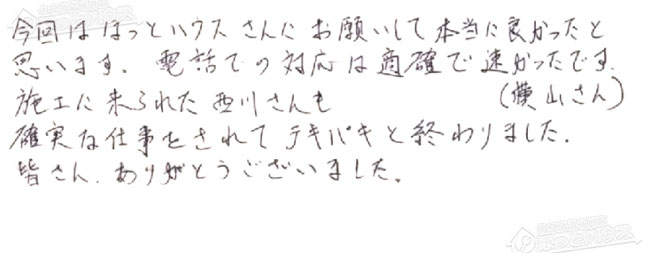 今回はほっとハウスさんにお願いして本当に良かったと
思います。電話での対応は適確で速かったです。
(横山さん)
施工に来られた西川さんも
確実な仕事をされてテキパキと終わりました。
皆さん、ありがとうございました。
ほっとハウス